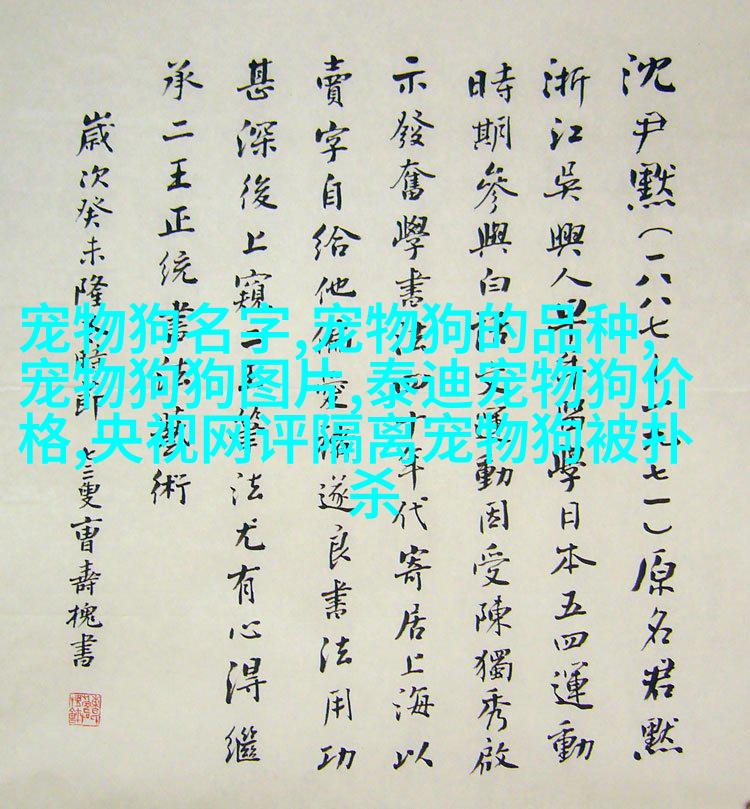 宠物狗名字,宠物狗的品种,
宠物狗狗图片,泰迪宠物狗价
格,央视网评隔离宠物狗被扑
杀
沈尹默(一八八七—一九七一)原名君默
浙江吳興人早學日本五四運動
時期參與白話文運動因受陳獨秀啟
示發奮學書法四十年代寄居上海以
賣字自給他偏愛褚遂良書法用功
甚深後上窺二王筆法尤有心得繼
承二王正統書法藝術
歲次癸未隆冬時節叟曹壽槐書